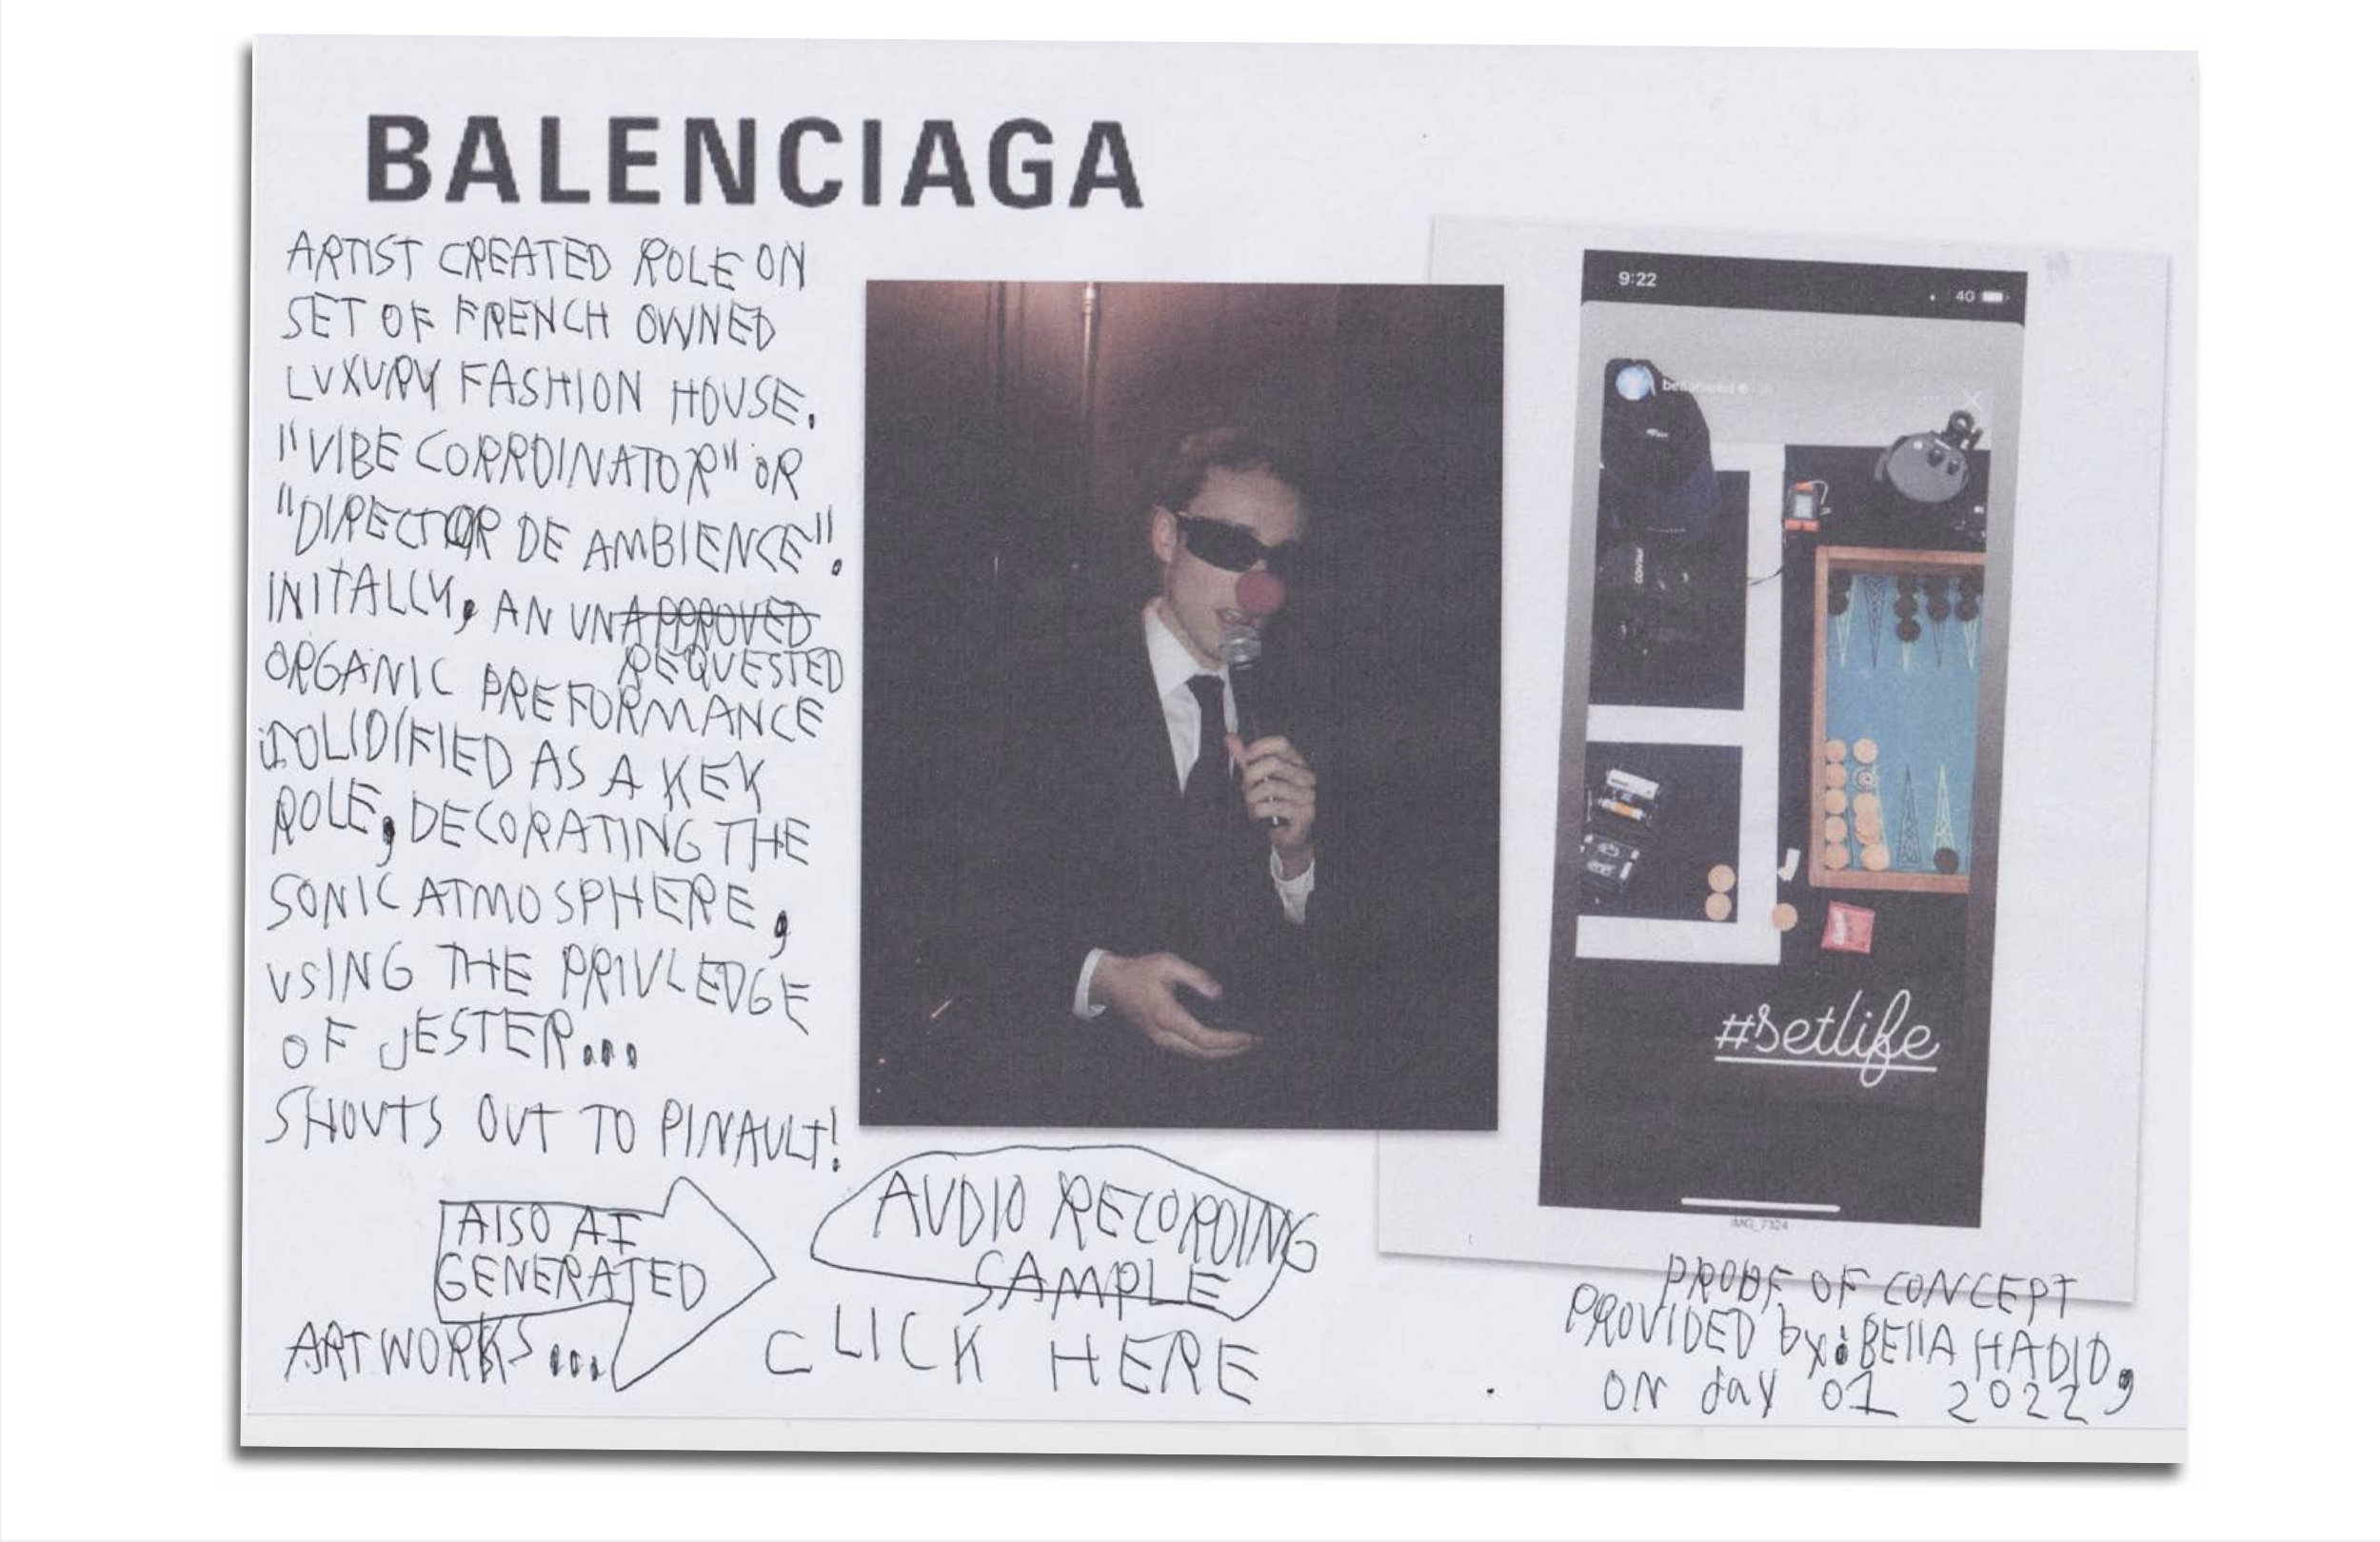 BALENCIAGA
ARTIST CREATED ROLE ON
SET OF FRENCH OWNED
LUXURY FASHION HOUSE.
"VIBE CORRDINATOR" OR
"DIRECTOR DE AMBIENCE".
INITALLY, AN UNAPPROVED
REQUESTED
ORGANIC PREFORMANCE
SOLIDIFIED AS A KEY
ROLE, DECORATING THE
SONIC ATMOSPHERE,
USING THE PRIVLEDGE
OF JESTER...
SHOUTS OUT TO PINAULT!
AlSO AI
GENERATED
ARTWORKS...
AUDIO RECORDING
SAMPLE
CLICK HERE
9:22
4G
bellahadid
#setlife
IMG_7324
PROOF OF CONCEPT
PROVIDED by: BEllA HADID,
ON day 01 2022